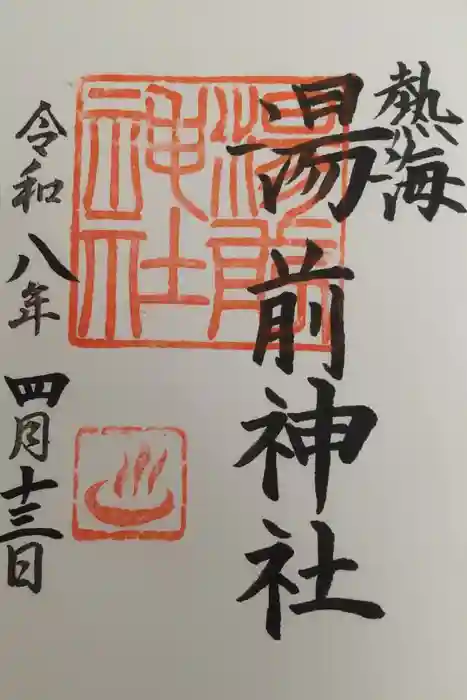 熱海
湯前神社
湯前神社
令和八年四月十三日